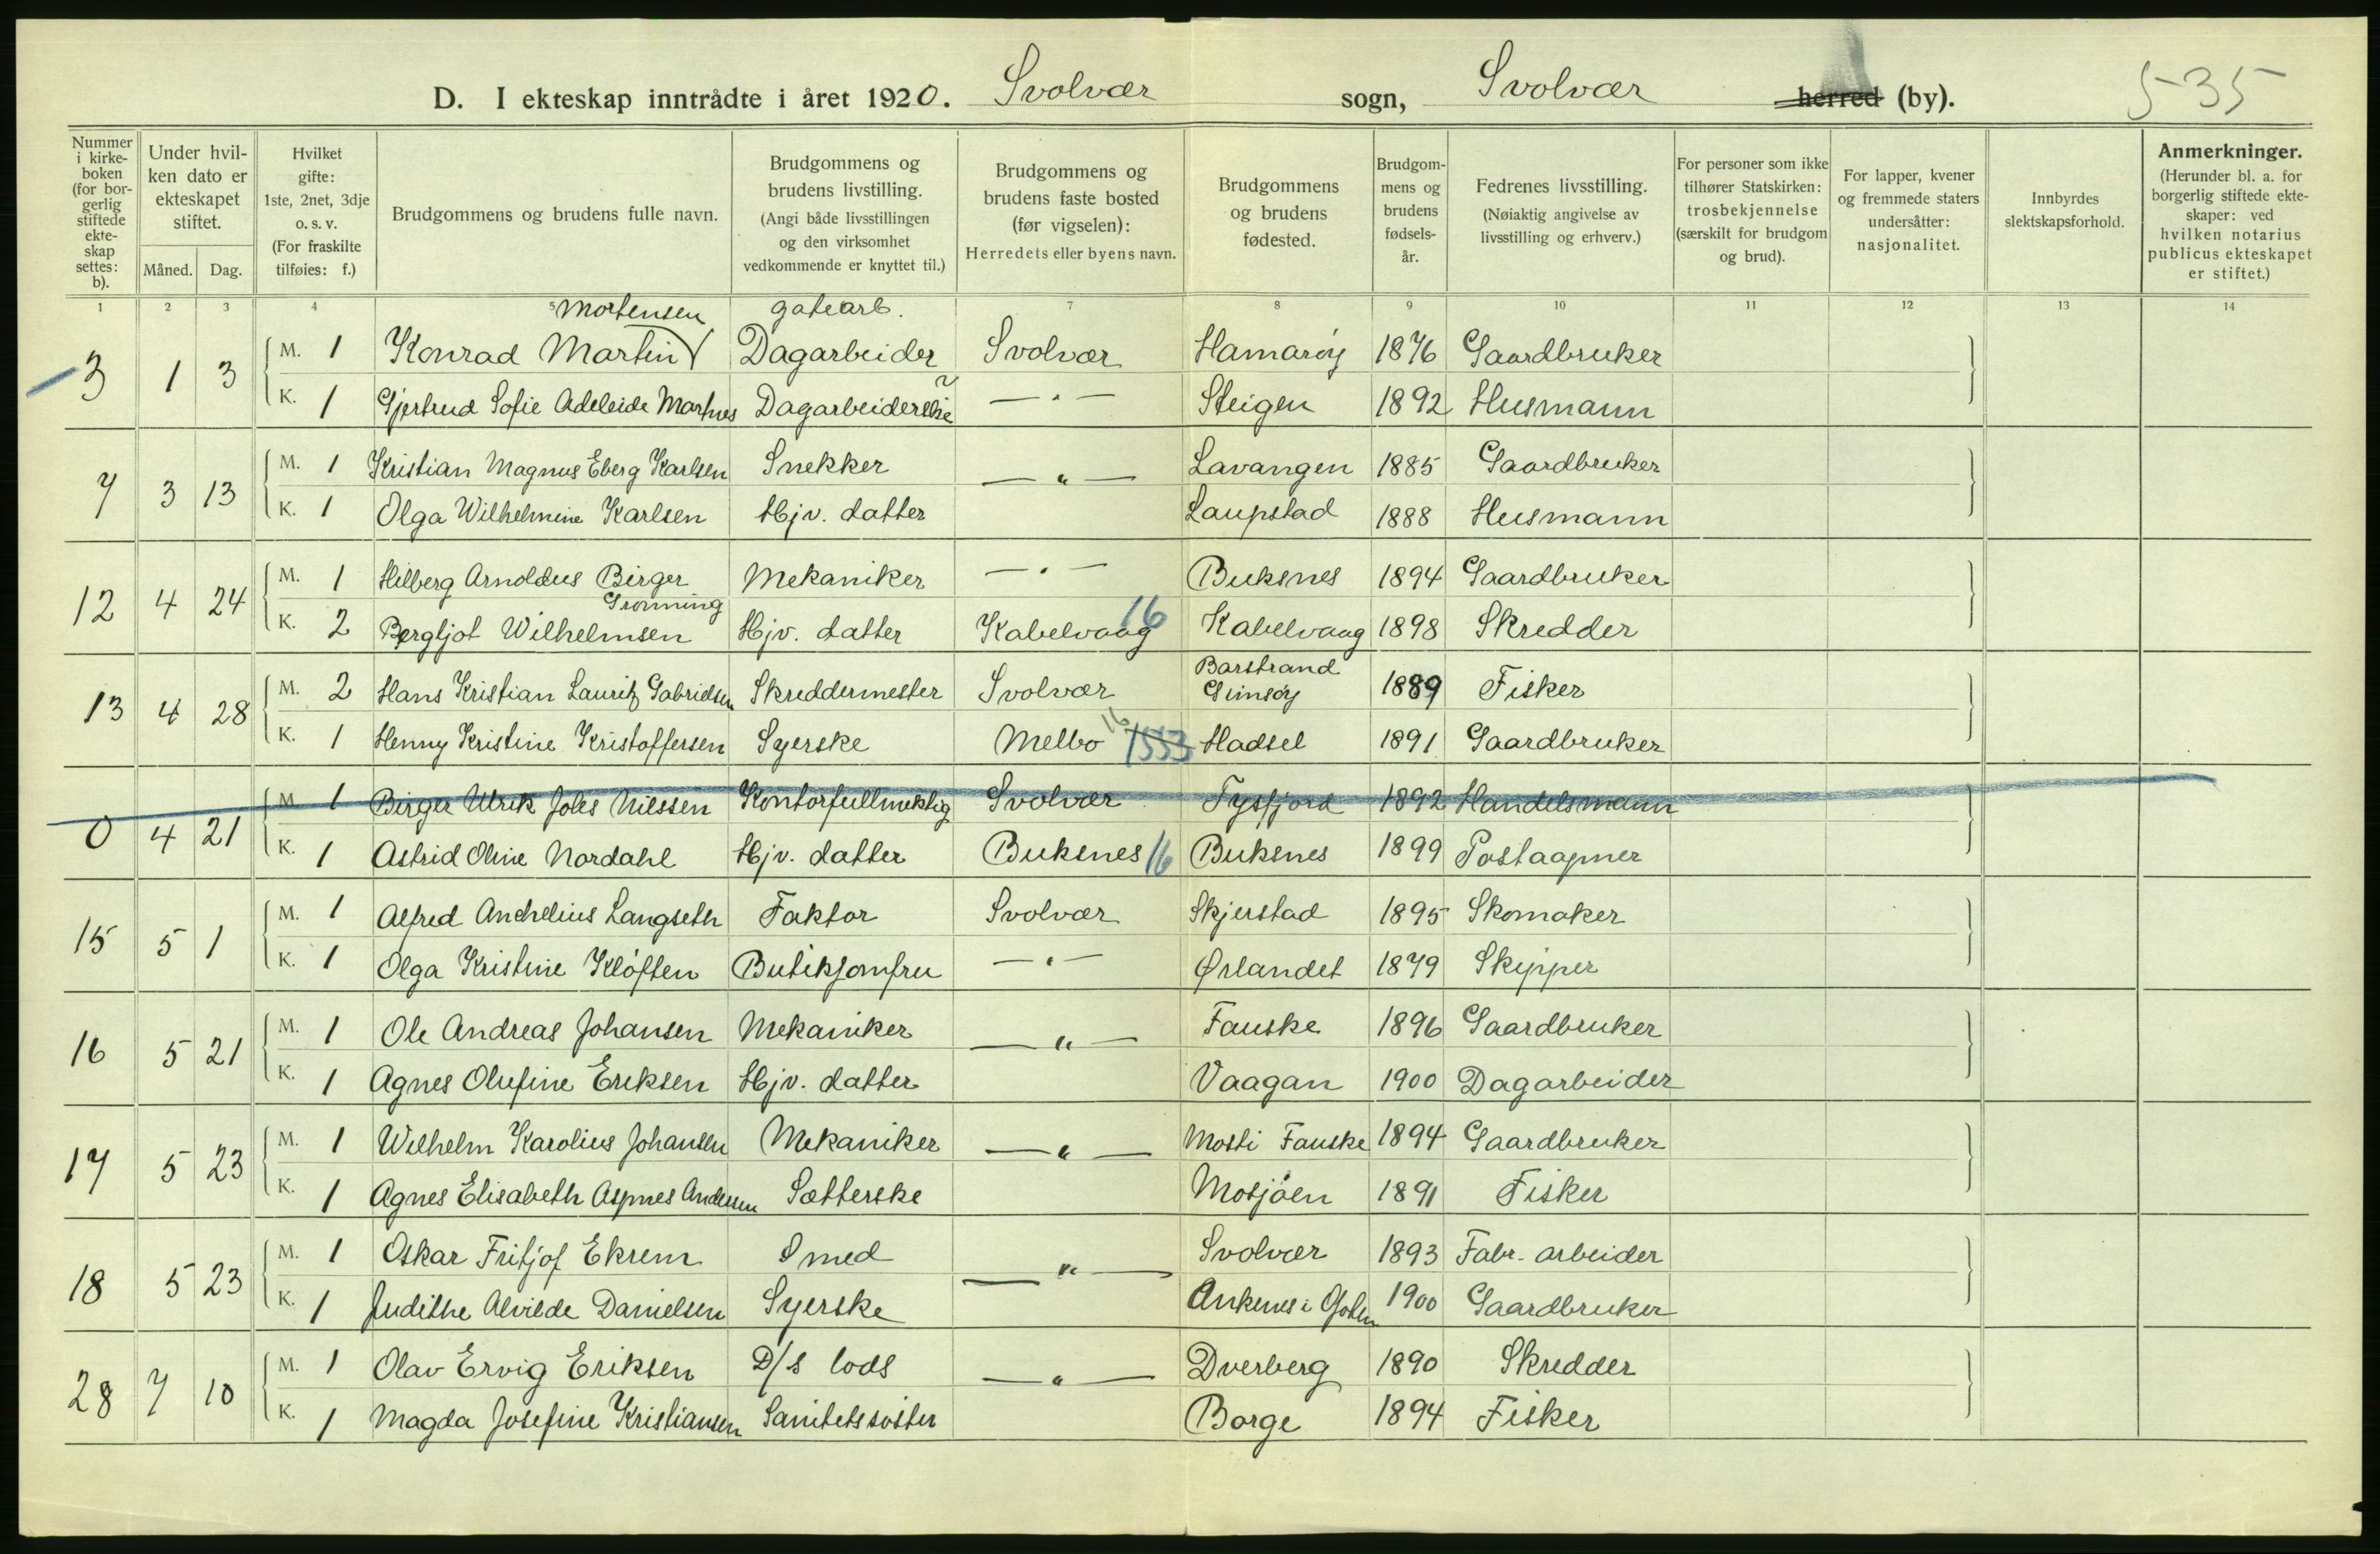 D. I ekteskap inntrådte i året 1920. Svolvær sogn, Svolvær herred (by). 535
Nummer i kirkeboken (for borgerlig stiftede ekteskap settes: b).
Under hvilken dato er ekteskapet stiftet.
Måned. Dag.
Hvilket gifte: 1ste, 2net, 3dje o. s. v. (For fraskilte tilføies: f.)
Brudgommens og brudens fulle navn.
Brudgommens og brudens livstilling. (Angi både livsstillingen og den virksomhet vedkommende er knyttet til.)
Brudgommens og brudens faste bosted (før vigselen): Herredets eller byens navn.
Brudgommens og brudens fødested.
Brudgommens og brudens fødselsår.
Fedrenes livsstilling. (Nøiaktig angivelse av livsstilling og erhverv.)
For personer som ikke tilhører Statskirken: trosbekjennelse (særskilt for brudgom og brud).
For lapper, kvener og fremmede staters undersåtter: nasjonalitet.
Innbyrdes slektskapsforhold.
Anmerkninger. (Herunder bl. a. for borgerlig stiftede ekteskaper: ved hvilken notarius publicus ekteskapet er stiftet.)
1 2 3 4 5 7 8 9 10 11 12 13 14
Mortensen gatearb.
3 1 3 M. 1 Konrad Martin Dagarbeider Svolvær Hamarøy 1876 Gaardbruker
K. 1 Gjertrud Sofie Adeleide Martnes Dagarbeiderske — " — Steigen 1892 Husmann
7 3 13 M. 1 Kristian Magnus Eberg Karlsen Snekker — " — Lavangen 1885 Gaardbruker
K. 1 Olga Wilhelmine Karlsen Hjv. datter Laupstad 1888 Husmann
12 4 24 M. 1 Hilberg Arnoldus Birger Grønning Mekaniker — " — Buksnes 1894 Gaardbruker
K. 2 Bergljot Wilhelmsen Hjv. datter Kabelvaag 16 Kabelvaag 1898 Skredder
13 4 28 M. 2 Hans Kristian Lauritz Gabrielsen Skreddermester Svolvær Barstrand Gimsøy 1889 Fisker
K. 1 Henny Kristine Kristoffersen Syerske Melbo 16 1553 Hadsel 1891 Gaardbruker
0 4 21 M. 1 Birger Ulrik Joles Nilssen Kontorfullmektig Svolvær Tysfjord 1892 Handelsmann
K. 1 Astrid Oline Nordahl Hjv. datter Buksnes 16 Buksnes 1899 Postaapner
15 5 1 M. 1 Alfred Anchelius Langseth Faktor Svolvær Skjerstad 1895 Skomaker
K. 1 Olga Kristine Kløften Butikjomfru — " — Ørlandet 1879 Skipper
16 5 21 M. 1 Ole Andreas Johansen Mekaniker — " — Fauske 1896 Gaardbruker
K. 1 Agnes Olufine Eriksen Hjv. datter Vaagan 1900 Dagarbeider
17 5 23 M. 1 Wilhelm Karolius Johansen Mekaniker — " — Mosti Fauske 1894 Gaardbruker
K. 1 Agnes Elisabeth Aspnes Andersen Sætterske Mosjøen 1891 Fisker
18 5 23 M. 1 Oskar Fritjof Ekrem Smed — " — Svolvær 1893 Fabr. arbeider
K. 1 Judithe Alvilde Danielsen Syerske Ankenes i Ofoten 1900 Gaardbruker
28 7 10 M. 1 Olav Ervig Eriksen D/s lods — " — Dverberg 1890 Skredder
K. 1 Magda Josefine Kristiansen Sanitetssøster Borge 1894 Fisker